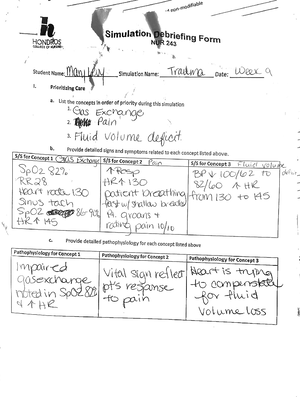 non-modifiable
HONDROS
COLLEGE OF NURSING
Simulation Debriefing Form
NUR 243
Student Name: Mary Levy Simulation Name: Trauma Date: Week 9
I. Prioritizing Care
a. List the concepts in order of priority during this simulation
1. Gas Exchange
2. Pain
3. Fluid volume deficit
b. Provide detailed signs and symptoms related to each concept listed above.
S/S for Concept 1 Gas Exchange
SpO2 82%
RR 28
Heart rate 130
Sinus tach
SpO2 86-90%
HR ↑ 145
S/S for Concept 2 Pain
↑ Resp
HR ↑ 130
patient breathing
fast w/ shallow breaths
Pt. groans +
rating pain 10/10
S/S for Concept 3 Fluid volume
BP ↓ 100/62 to
82/60 ↑ HR
from 130 to 145
c. Provide detailed pathophysiology for each concept listed above
Pathophysiology for Concept 1
Impaired
gas exchange
noted in SpO2 82%
+ ↑ HR
Pathophysiology for Concept 2
Vital sign reflect
pt's response
to pain
Pathophysiology for Concept 3
Heart is trying
to compensate
for fluid
volume loss